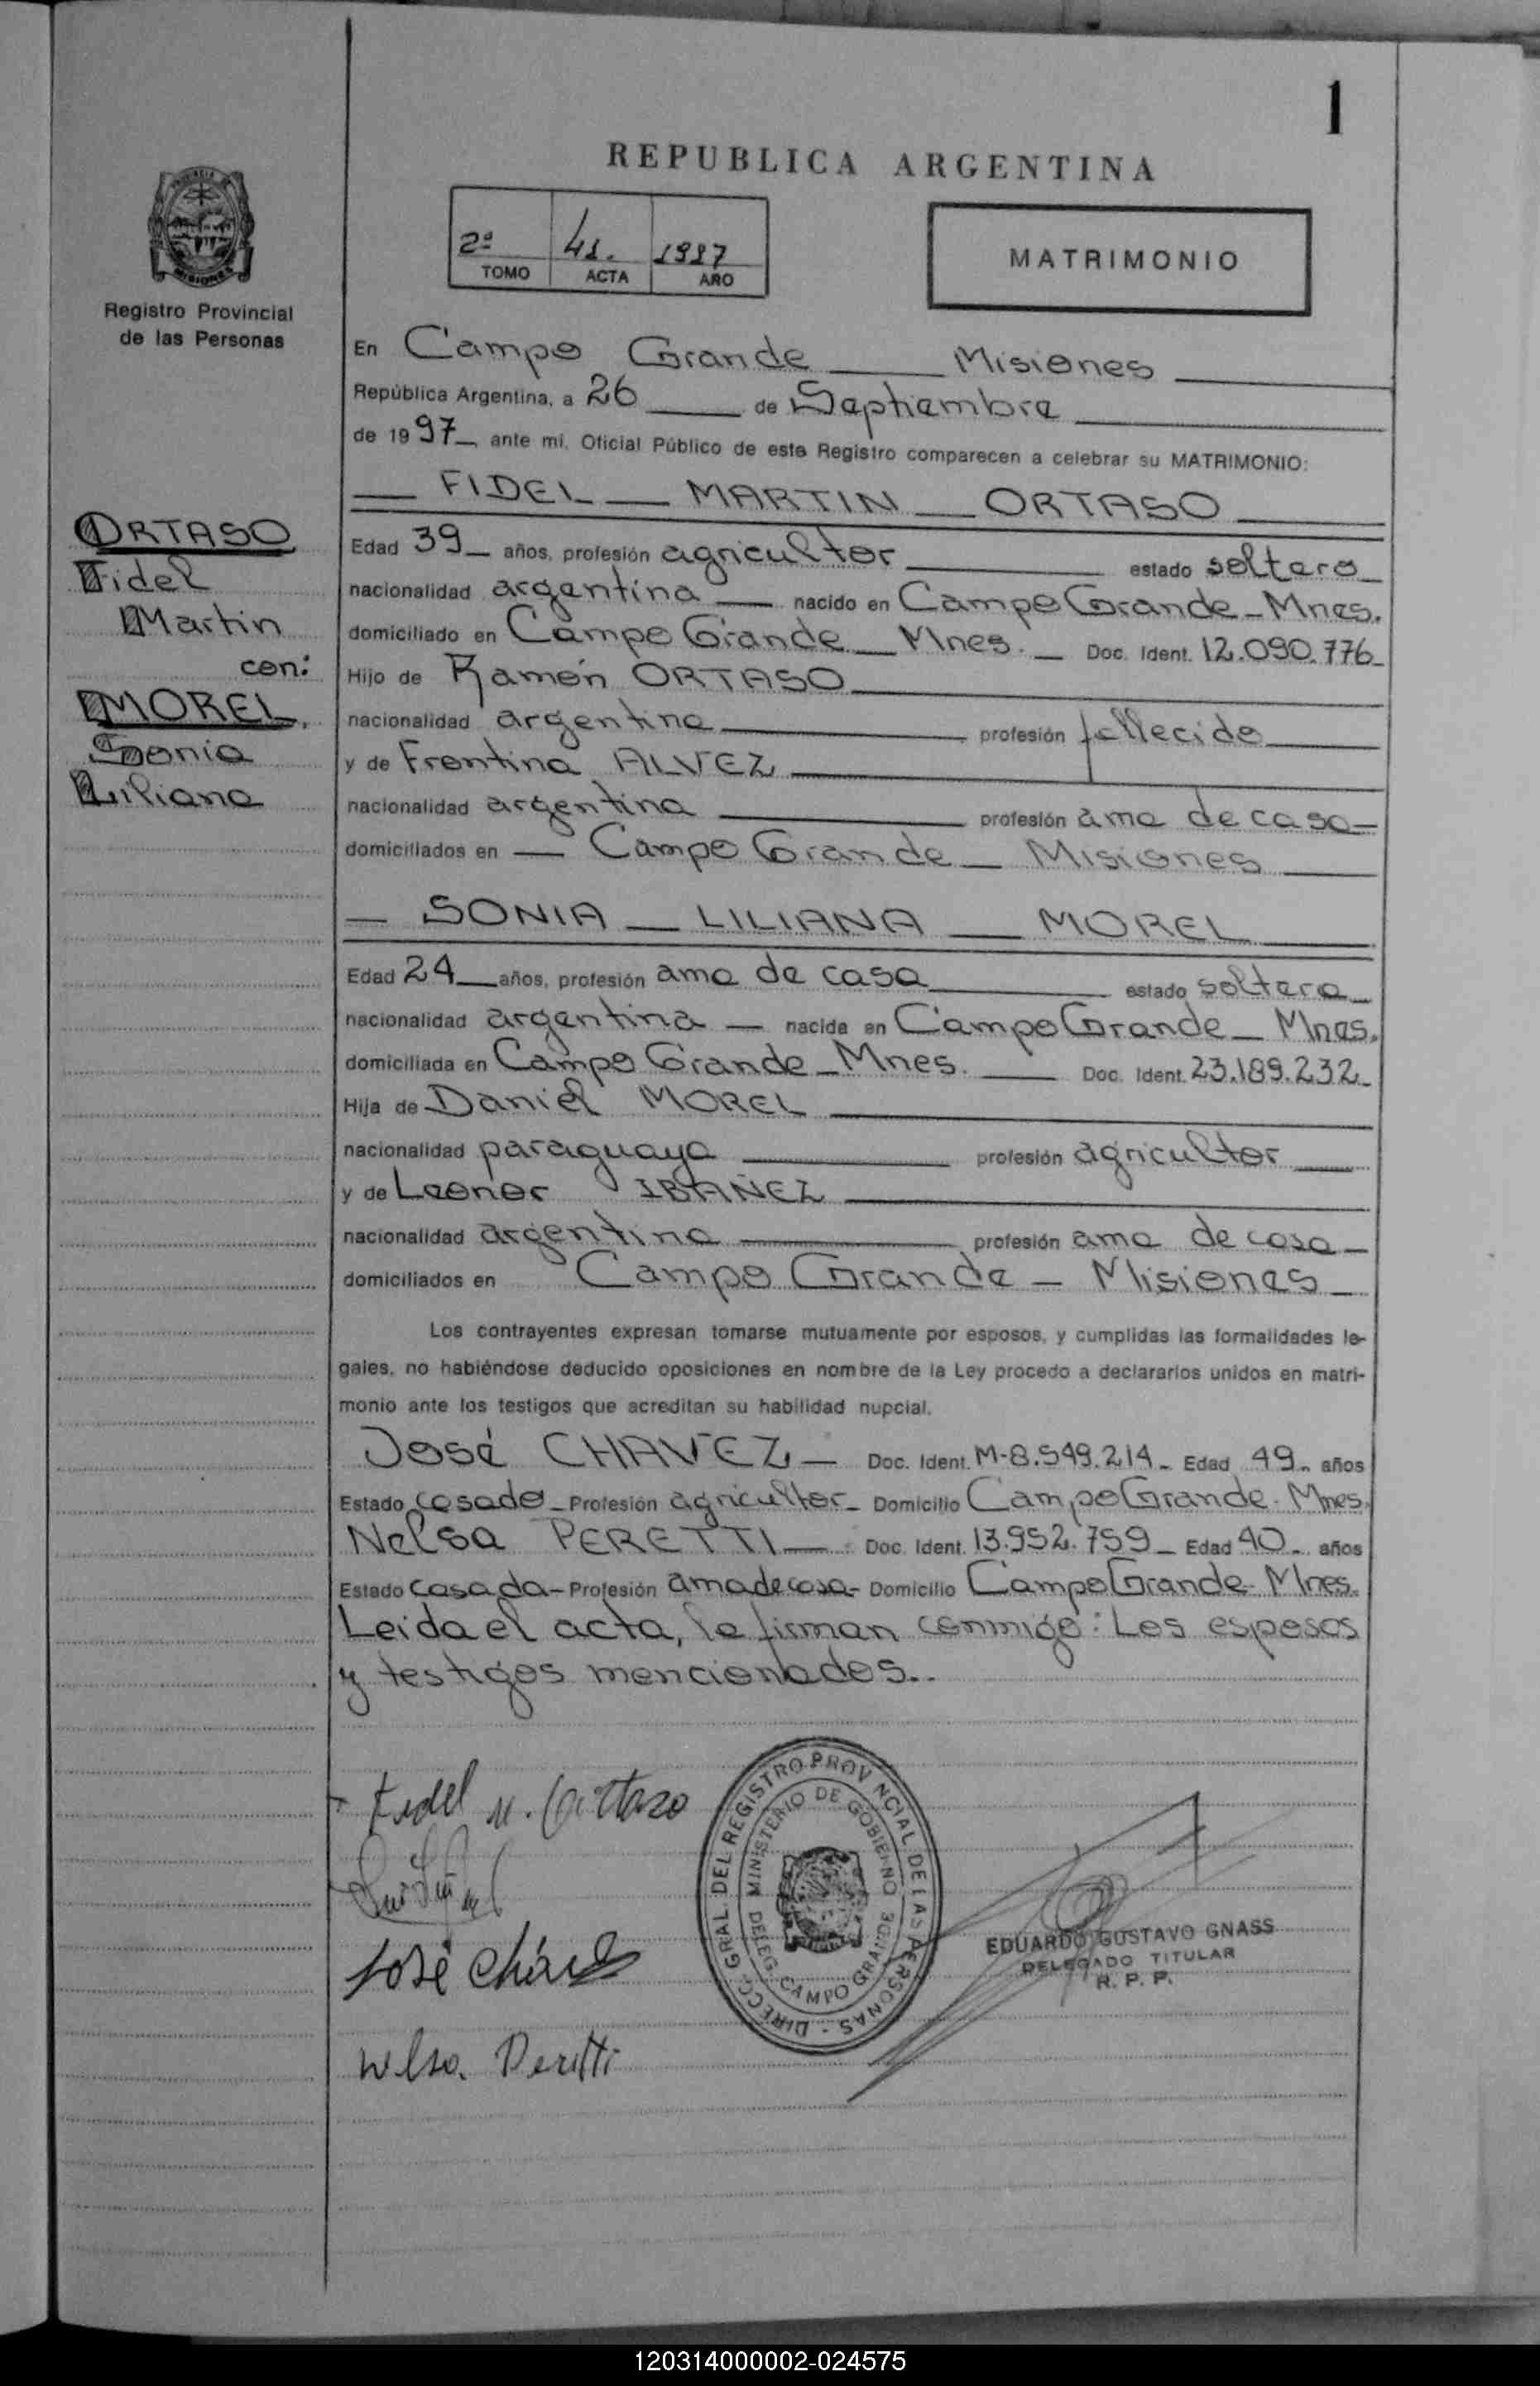 1
REPUBLICA ARGENTINA
2º 41. 1997
TOMO ACTA AÑO
MATRIMONIO
Registro Provincial
de las Personas
En Campo Grande Misiones
República Argentina, a 26 de Septiembre
de 1997 ante mi, Oficial Público de este Registro comparecen a celebrar su MATRIMONIO:
FIDEL MARTIN ORTASO
ORTASO
Fidel
Martin
con:
MOREL
Sonia
Liliana
Edad 39 años, profesión agricultor estado soltero
nacionalidad argentina nacido en Campo Grande - Mnes.
domiciliado en Campo Grande Mnes. Doc. Ident. 12.090.776
Hijo de Ramón ORTASO
nacionalidad argentina profesión fallecido
y de Frontina ALVEZ
nacionalidad argentina profesión ama de casa
domiciliados en Campo Grande Misiones
SONIA LILIANA MOREL
Edad 24 años, profesión ama de casa estado soltera
nacionalidad argentina nacida en Campo Grande Mnes.
domiciliada en Campo Grande Mnes. Doc. Ident. 23.189.232
Hija de Daniel MOREL
nacionalidad paraguaya profesión agricultor
y de Leonor IBAÑEZ
nacionalidad argentina profesión ama de casa
domiciliados en Campo Grande - Misiones
Los contrayentes expresan tomarse mutuamente por esposos, y cumplidas las formalidades le-
gales, no habiéndose deducido oposiciones en nombre de la Ley procedo a declararlos unidos en matri-
monio ante los testigos que acreditan su habilidad nupcial.
José CHAVEZ Doc. Ident. M-8.549.214 Edad 49 años
Estado casado Profesión agricultor Domicilio Campo Grande. Mnes.
Nelsa PERETTI Doc. Ident. 13.952.759 Edad 40 años
Estado casada Profesión ama de casa Domicilio Campo Grande Mnes.
Leida el acta, la firman conmigo: Los esposos
y testigos mencionados..
Fidel M. Ortaso
José Cháve
Nelsa. Peretti
DIRECC. GRAL. DEL REGISTRO PROVINCIAL DE LAS PERSONAS -
MINISTERIO DE GOBIERNO
DELEG. CAMPO GRANDE
EDUARDO GUSTAVO GNASS
DELEGADO TITULAR
R. P. P.
120314000002-024575